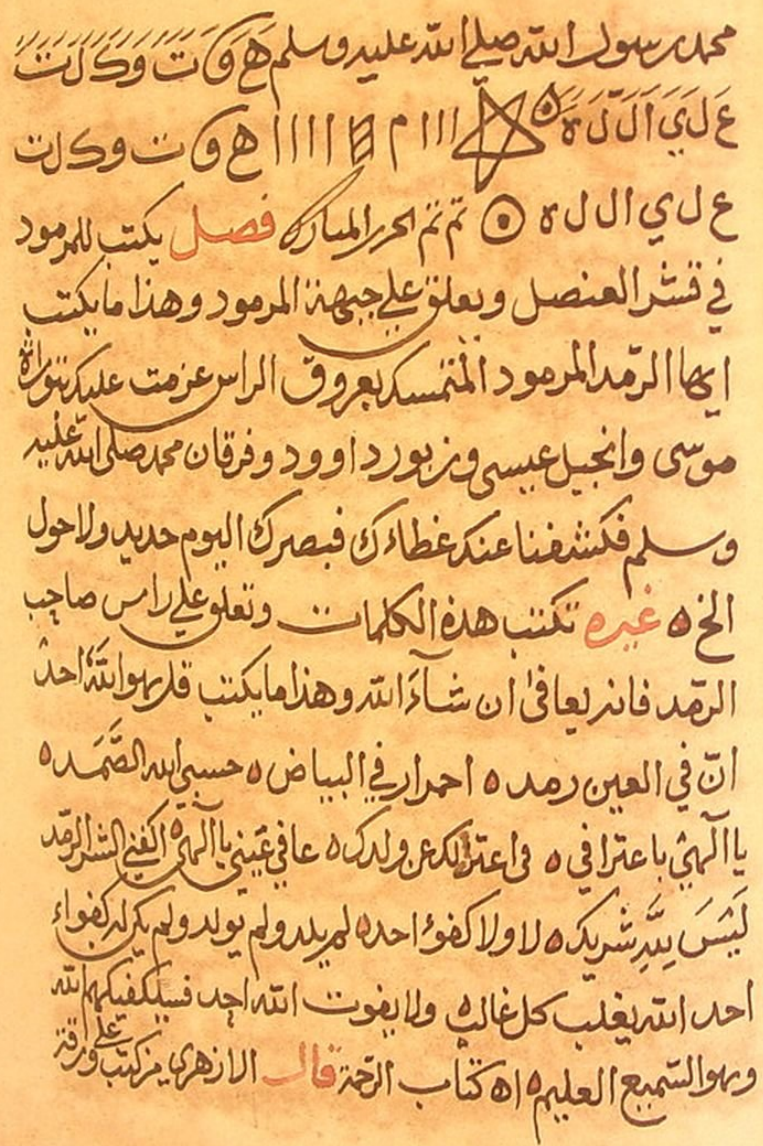 محمد رسول الله صلي الله عليه وسلم هَ وَ تَ وَ كَ لَ تَ
عَ لَ يَ اَ لَ لَ هَ ااا م اااا ه و ت و ك ل ت
ع ل ي ا ل ل ه تم تم الحرز المبارك فصل يكتب للمرمود
في قشر العنصل ويعلق علي جبهة المرمود وهذا ما يكتب
ايها الرّمد المرمود المتمسك بعروق الراس عزمت عليك بتوراة
موسى وانجيل عيسى وزبور داوود وفرقان محمد صلى الله عليه
وسلم فكشفنا عنك غطاءك فبصرك اليوم حديد ولا حول
الخ ه غيره تكتب هذه الكلمات وتعلق علي راس صاحب
الرّمد فانه يعافى ان شآء الله وهذا ما يكتب قل هو الله احدٌ
انّ في العين رمد ه احمرار في البياض ه حسبي الله الصَّمَد ه
يا الٓهي باعترافي ه في اعتزالك عن ولدك ه عافي عيني يا الٓهي ه اكفني الشر الرّمد
لَيْسَ لِلَّهِ شريك ه لا ولا كفؤ احد ه لم يلد ولم يولد ولم يكن له كفواء
احد الله يغلب كل غالب ه ولا يفوت الله احد فسيكفيكهم الله
وهو السّميع العليم ه اه كتاب الرّحمة قال الازهري من كتب علي ورقة